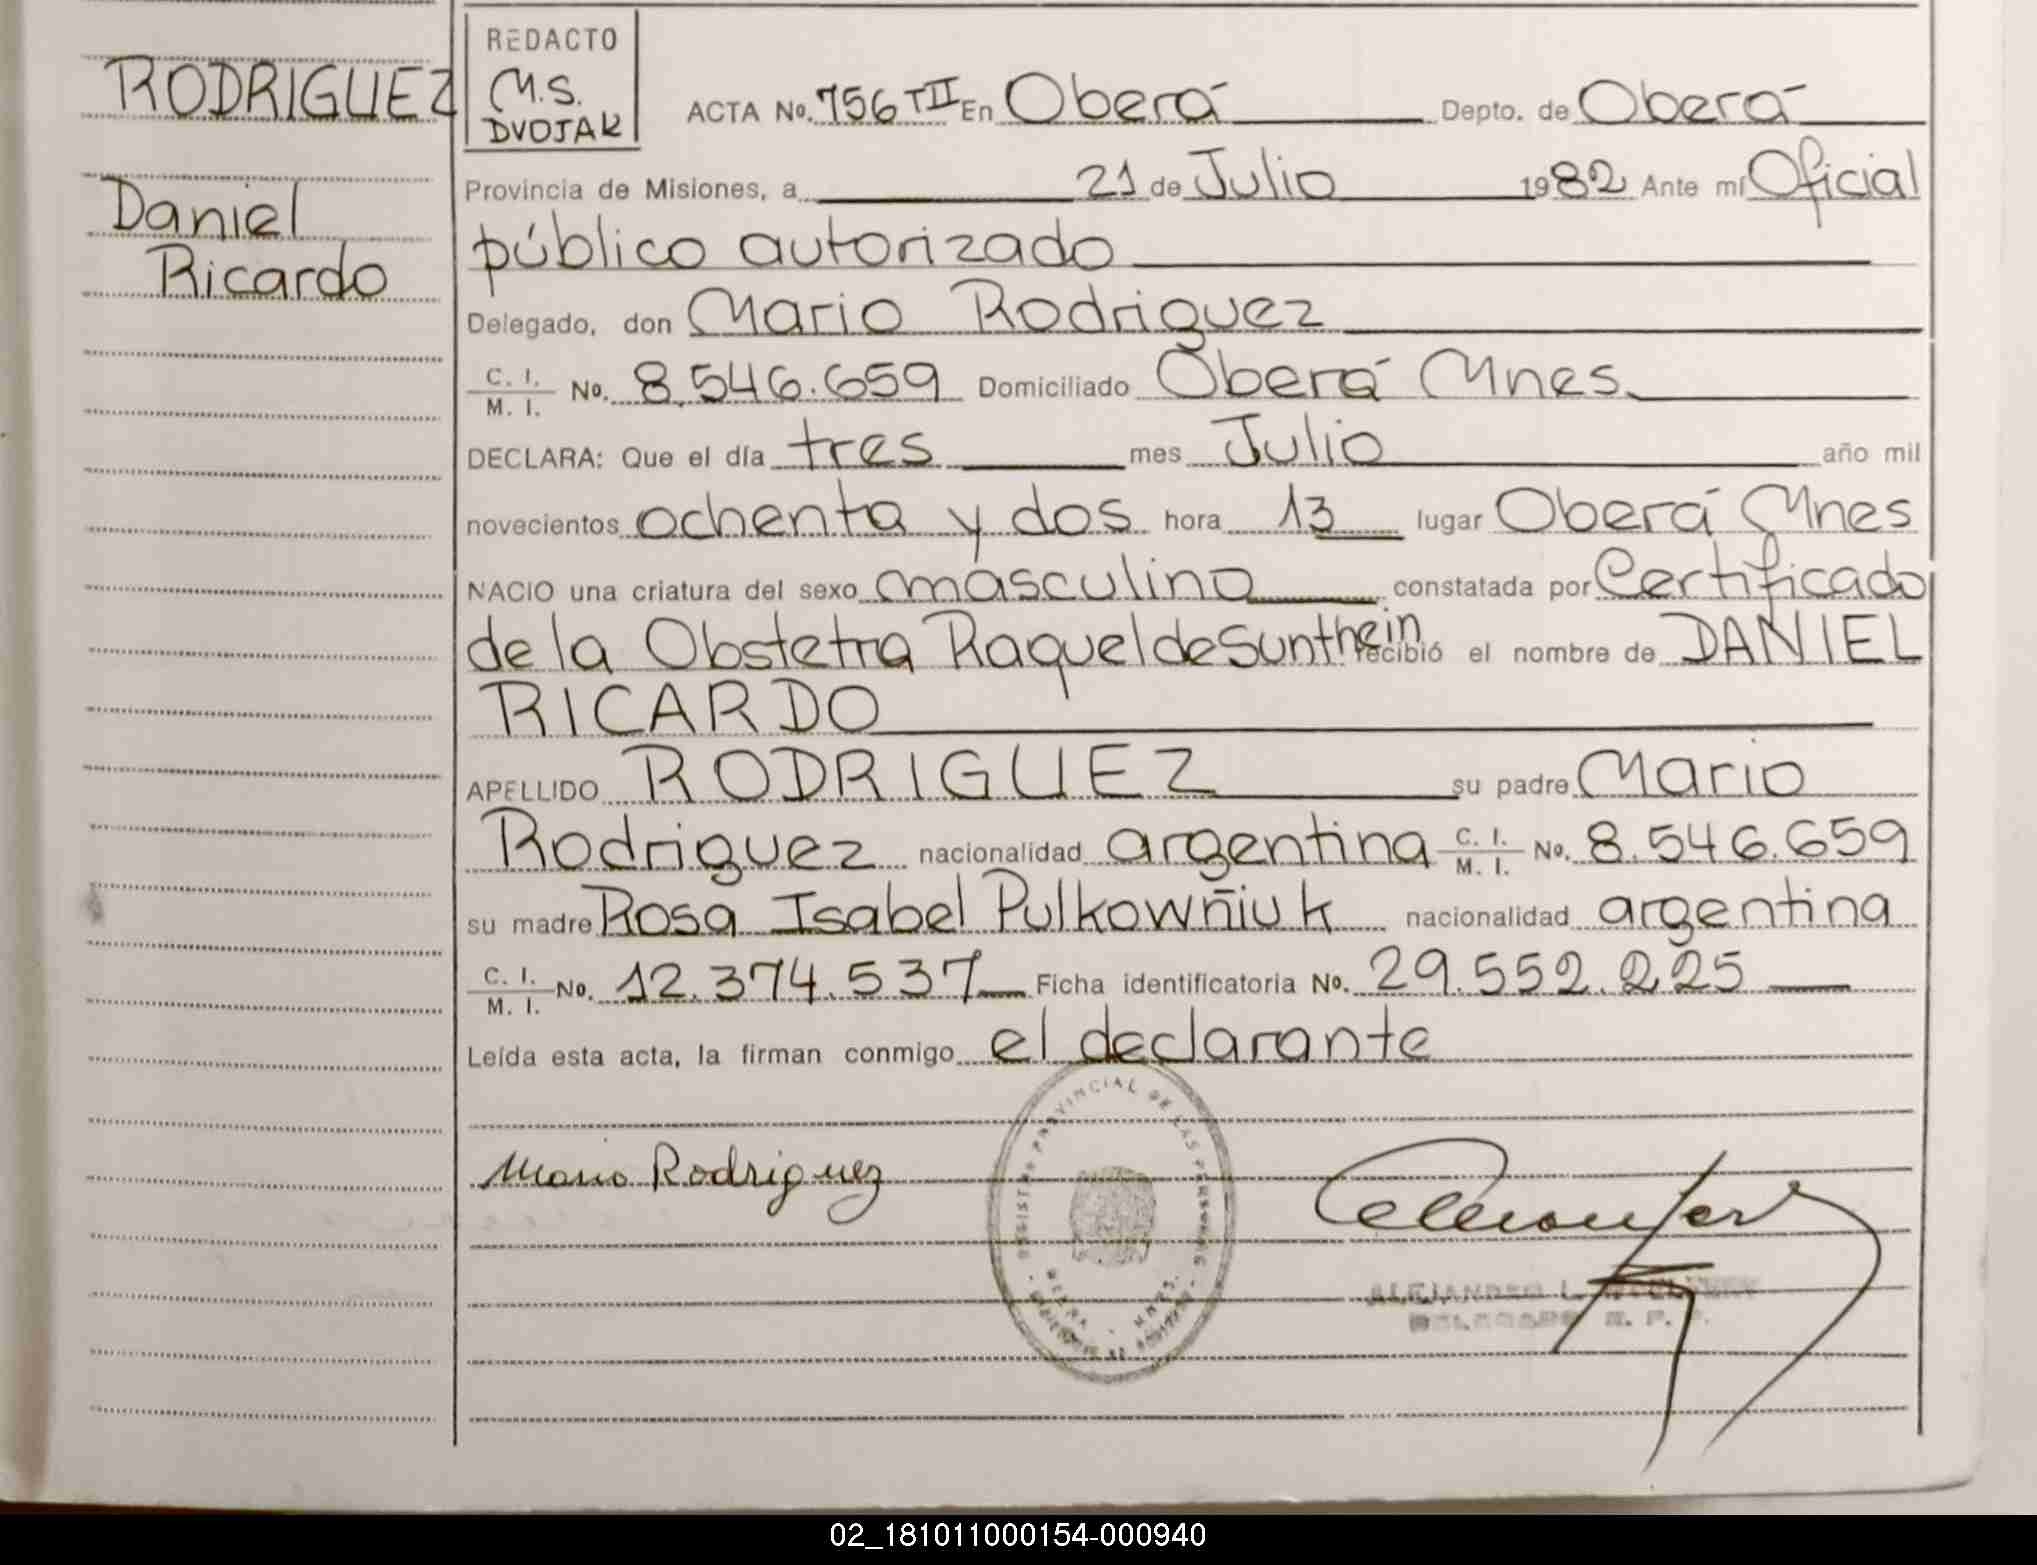 RODRIGUEZ
Daniel
Ricardo
REDACTO
M.S.
DVOJAK
ACTA No. 756 TII En Oberá Depto. de Oberá
Provincia de Misiones, a 21 de Julio 1982 Ante mí Oficial
público autorizado
Delegado, don Mario Rodriguez
C. I. / M. I. No. 8.546.659 Domiciliado Oberá Mnes.
DECLARA: Que el día tres mes Julio año mil
novecientos ochenta y dos hora 13 lugar Oberá Mnes
NACIO una criatura del sexo masculino constatada por Certificado
de la Obstetra Raquel de Sunthein recibió el nombre de DANIEL
RICARDO
APELLIDO RODRIGUEZ su padre Mario
Rodriguez nacionalidad argentina C. I. / M. I. No. 8.546.659
su madre Rosa Isabel Pulkowñiuk nacionalidad argentina
C. I. / M. I. No. 12.374.537 Ficha identificatoria No. 29.552.225
Leída esta acta, la firman conmigo el declarante
Mario Rodriguez
REGISTRO PROVINCIAL DE LAS PERSONAS
OBERA - MNES.
ALEJANDRO L.
DELEGADO R. P. P.
02_181011000154-000940